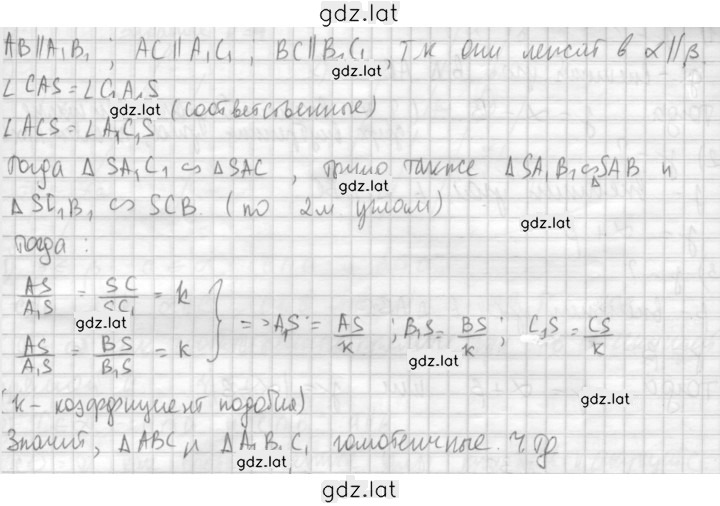 gdz.lat
AB∥A₁B₁ ; AC∥A₁C₁ ; BC∥B₁C₁ , т.к они лежат в α∥β
gdz.lat
∠CAS = ∠C₁A₁S
gdz.lat (соответственные)
∠ACS = ∠A₁C₁S
Тогда Δ SA₁C₁ ∽ ΔSAC , также ΔSA₁B₁ ∽ ΔSAB и
gdz.lat
ΔSC₁B₁ ∽ SCB. (по 2м углам)
gdz.lat
Тогда :
AS/A₁S = SC/SC₁ = k
gdz.lat
AS/A₁S = BS/B₁S = k
=> A₁S = AS/k ; B₁S = BS/k ; C₁S = CS/k
gdz.lat
gdz.lat
(k - коэффициент подобия)
Значит, ΔABC и ΔA₁B₁C₁ гомотетичные. Чтд
gdz.lat
gdz.lat